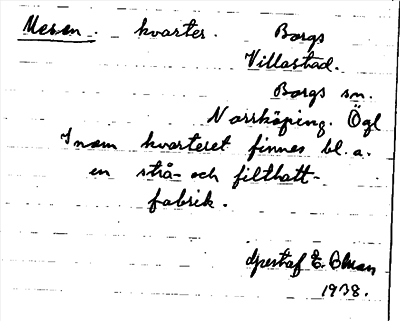 Mesen. kvarter. Borgs
Villastad.
Borgs sn.
Norrköping. Ögl
Inom kvarteret finnes bl. a.
en strå- och filthatt-
fabrik.
Gustaf E. Ekman
1938.